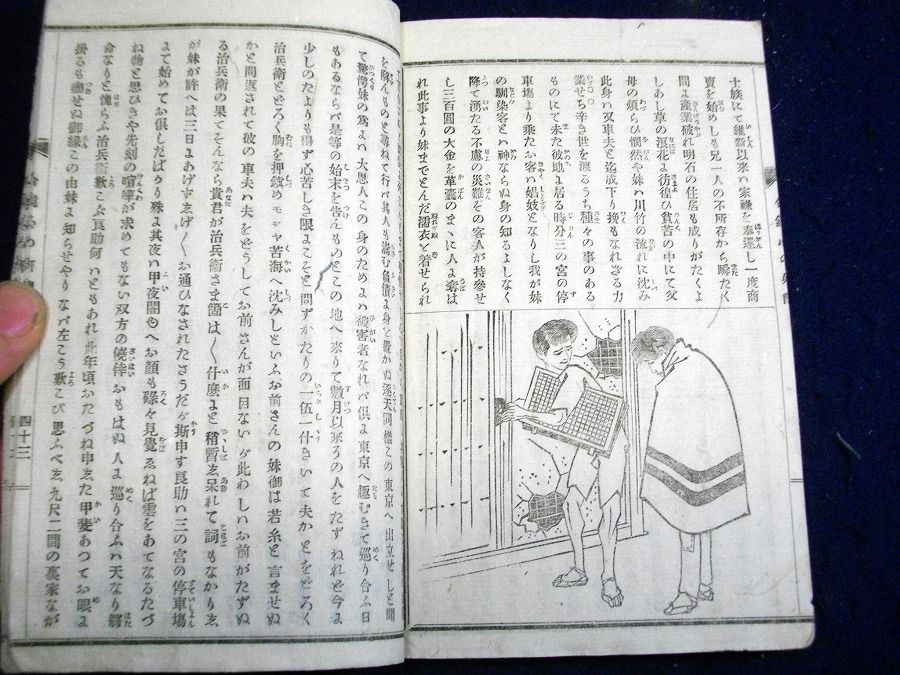 士族にて維新以来ハ家祿を奉還し一度商
賣を始めしも兄一人の不所存から瞬たく
間よ産業破れ明石の住居も成りがたくよ
しあし草の浪花よ彷徨ひ貧苦の中にて父
母の煩らひ憫然や妹ハ川竹の流れに沈み
此身ハ又車夫と迄成下り挽もなれざる力
業せち辛き世を渡るうち種々の事のある
ものにて未た彼地よ居る時分三の宮の停
車塲より乘たお客ハ娼妓となりし我が妹
の馴染客とハ神ならぬ身の知るよしなく
降て湧たる不慮の災難その客人が持參せ
し三百圓の大金を革囊のまゝに人よ奪は
れ此事より妹までとんだ濡衣と着せられ
て驚愕妹の爲よハ大恩人この身のためよハ被害者なれバ倶よ東京へ趣むきて巡り合ふ日
もあるならバ是等の始末を告んものとこの地へ來りて數月以來ろの人をたずぬれど今よ
少しのたよりも得ず心苦しき限よこそとと問ずかたりの一伍一什きいて夫かとをどろく
治兵衛とどろく胸を押鎮めモシヤ苦海へ沈みしといふお前さんの妹御は若糸と言ませぬ
かと問返されて彼の車夫ハ夫をどうしてお前さんが面目ないが此わしハお前がたずぬ
る治兵衛の果てそんなら貴君が治兵衛さま箇はく什麽よと稍暫ゑ呆れて詞もなかりゑ
が妹が許へは三日よあげずゑげくお通ひなされたさうだが斯申す良助ハ三の宮の停車塲
よて始めてお倶しだばかり殊よ其夜ハ甲夜闇ゆへお顔も碌々見覺ゑねば雲をあてなるたづ
ね物と思ひきや先刻の喧嘩が求めてもない双方の僥倖おもはぬ人よ巡り合ふハ天なり
命なりと愧らふ治兵衛歡こふ良助何ハともあれ此年頃おたづね申ゑた甲斐あつてお眼よ
掛るも盡せぬ御縁この由妹よ知らせやりなバ左こう歡こび思ふべゑ九尺二間の裏家なが
四十三